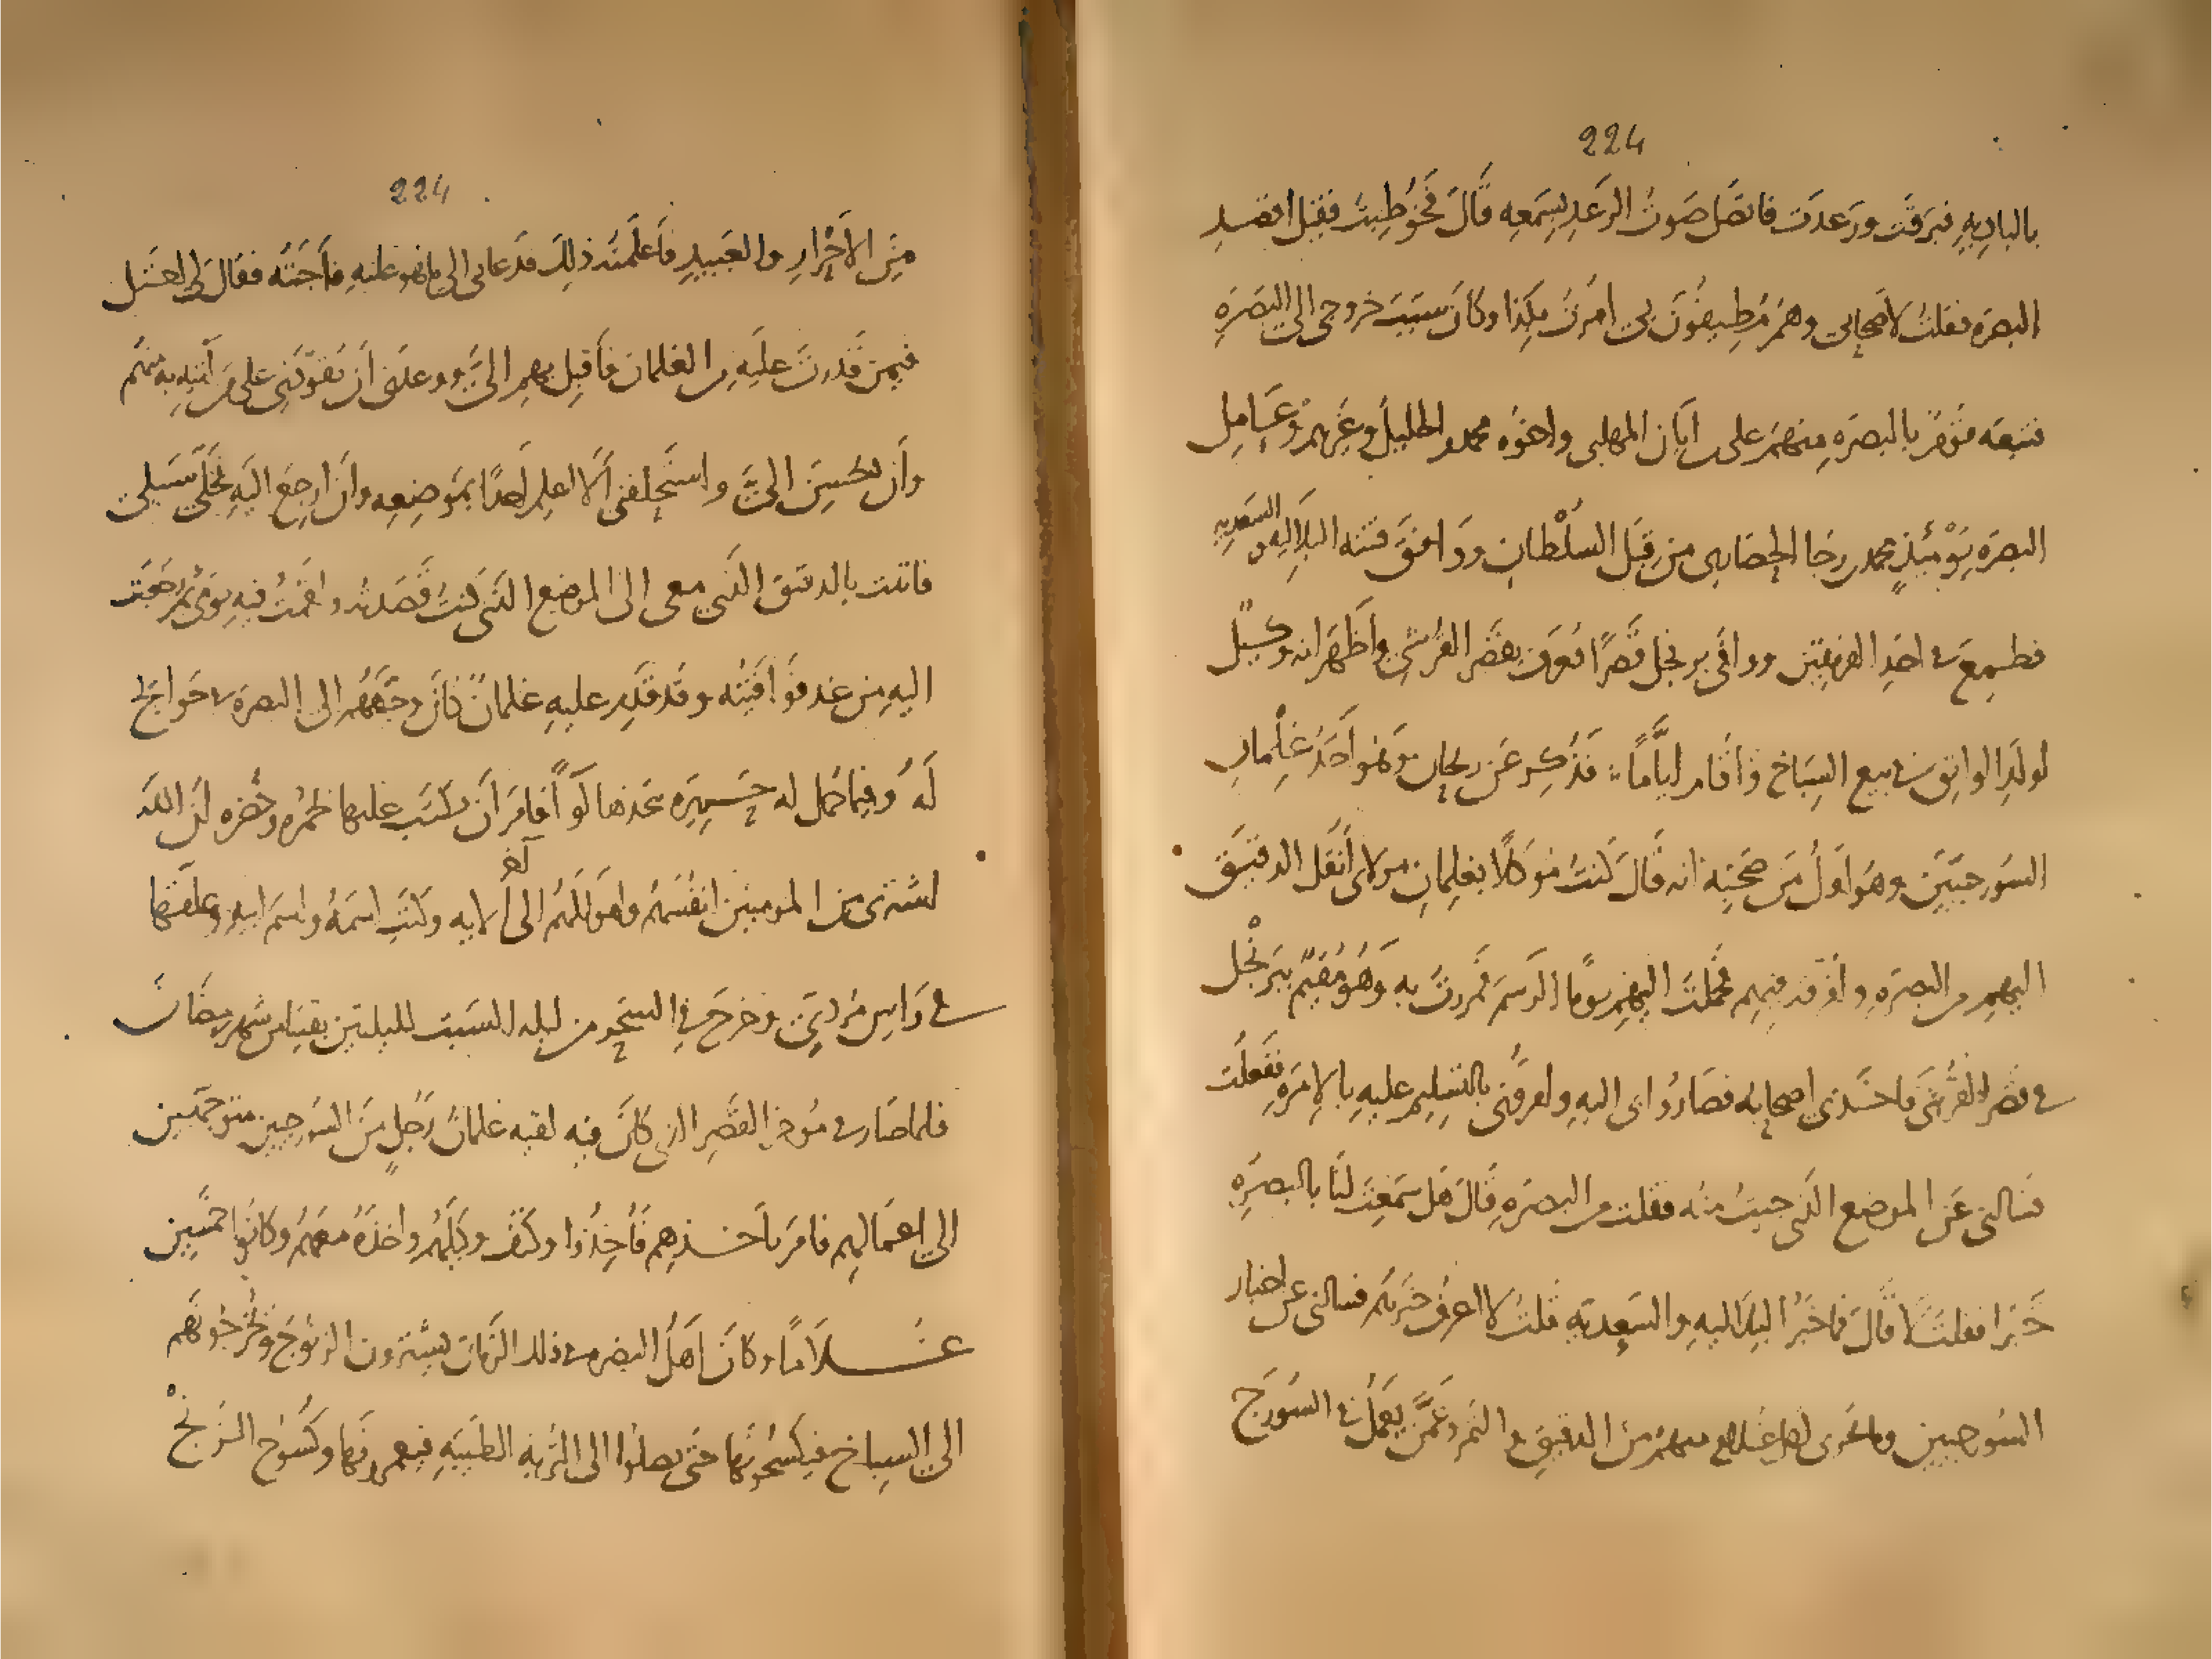 224
بالباديه فبرقت ورعدت فاتصل صوت الرعد بسمعه قال فخوطبت فقيل اقصد
البصره فقلت لاصحابى وهم مُطيفُون بى امرت بكذا وكان سبب خروجى الى البصره
فتبعه قوم بالبصره منهم على بن ابان المهلبى واخوه محمد والخليل وغيرهم وعامل
البصره يَوْمئذٍ محمد بن رجا الحضارى من قبل السلْطان ووافق فتنه البلاليه والسعديه
فطمع فى احد الفريقين ووافى برنخل قصرًا يُعرف بقصر القرشى واظهر انه وكيل
لولد الواثق فى بيع السباخ واقام ايامًا فذكر عن ريحان وهو احد غلمان
السورجيين وهو اول من صحبه انه قال كنت موكلا بغلمان مولاى انقل الدقيق
اليهم من البصره وافرقه فيهم فحملت اليهم يومًا الرسم فمررت به وهو مُقيم ببرنخل
فى قصر القرشى فاخذنى اصحابه فصاروا بى اليه وامرونى بالتسليم عليه بالامره ففعلت
فسالنى عن الموضع الذى جيت منه فقلت من البصره قال هل سمعت لنا بالبصره
خبرا فقلت لا قال فما خبر البلاليه والسعديه قلت لا اعرف خبرهم فسالنى عن اخبار
السورجيين وما يجرى لكل غلام منهم من الدقيق والتمر وعمن يعمل فى السورج
224
من الاحرار والعبيد فاعلمته ذلك فدعانى الى ما هو عليه فاجبته فقال لى احتل
فيمن قدرت عليه من الغلمان فاقبل بهم الىّ ووعدنى ان يقودنى على من آتيه به منهم
وان يحسن الىّ واستحلفنى ألا اعلم احدًا بموضعه وان ارجع اليه فخلّى سبيلى
فاتيت بالدقيق الذى معى الى الموضع الذى كنت قصدته واقمت فيه يومى ثم رجعت
اليه من غد فوافيته وقد قدم عليه غلمان كان وجههم الى البصره فى حوايج
له وفيما حمل له حريره يتخذها لواً فامر ان يكتب عليها بحمره وخضره ان الله
اشترى من المومنين انفسهم واموالهم الى آخر الايه وكتب اسمه واسم ابيه وعلقها
فى راس مُردى وخرج فى السحر من ليله السبت لليلتين بقيتا من شهر رمضان
فلما صار فى موخر القصر الذى كان فيه لقيه غلمان رجلٍ من السورجيين متوجهين
الى اعمالهم فامر باخذهم فأُخِذُوا وكتف وكيلهم واخذه معهم وكانوا خمسين
غلامًا وكان اهل البصره فى ذلك الزمان يشترون الزنوج ويخرجونهم
الى السباخ فيكسحونها حتى يصلوا الى التربه الطيبه فيعمرونها وكسوح الزنج